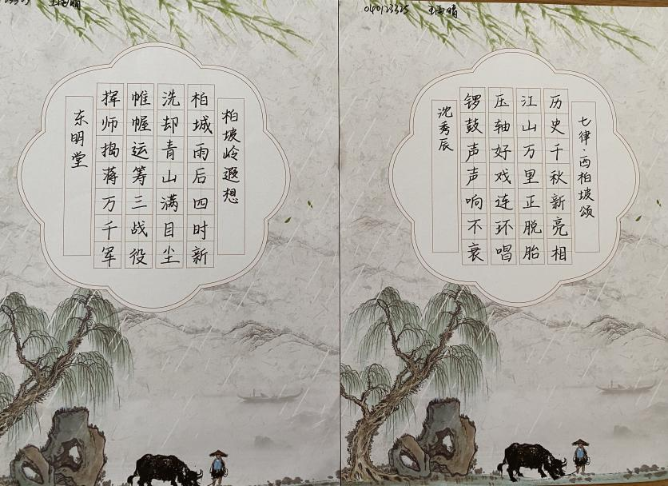 柏坡岭遐想
柏城雨后四时新
洗却青山满目尘
帷幄运筹三战役
挥师捣蒋万千军
东明堂
040123325
七律·西柏坡颂
历史千秋新亮相
江山万里正脱胎
压轴好戏连环唱
锣鼓声声响不衰
沈秀辰